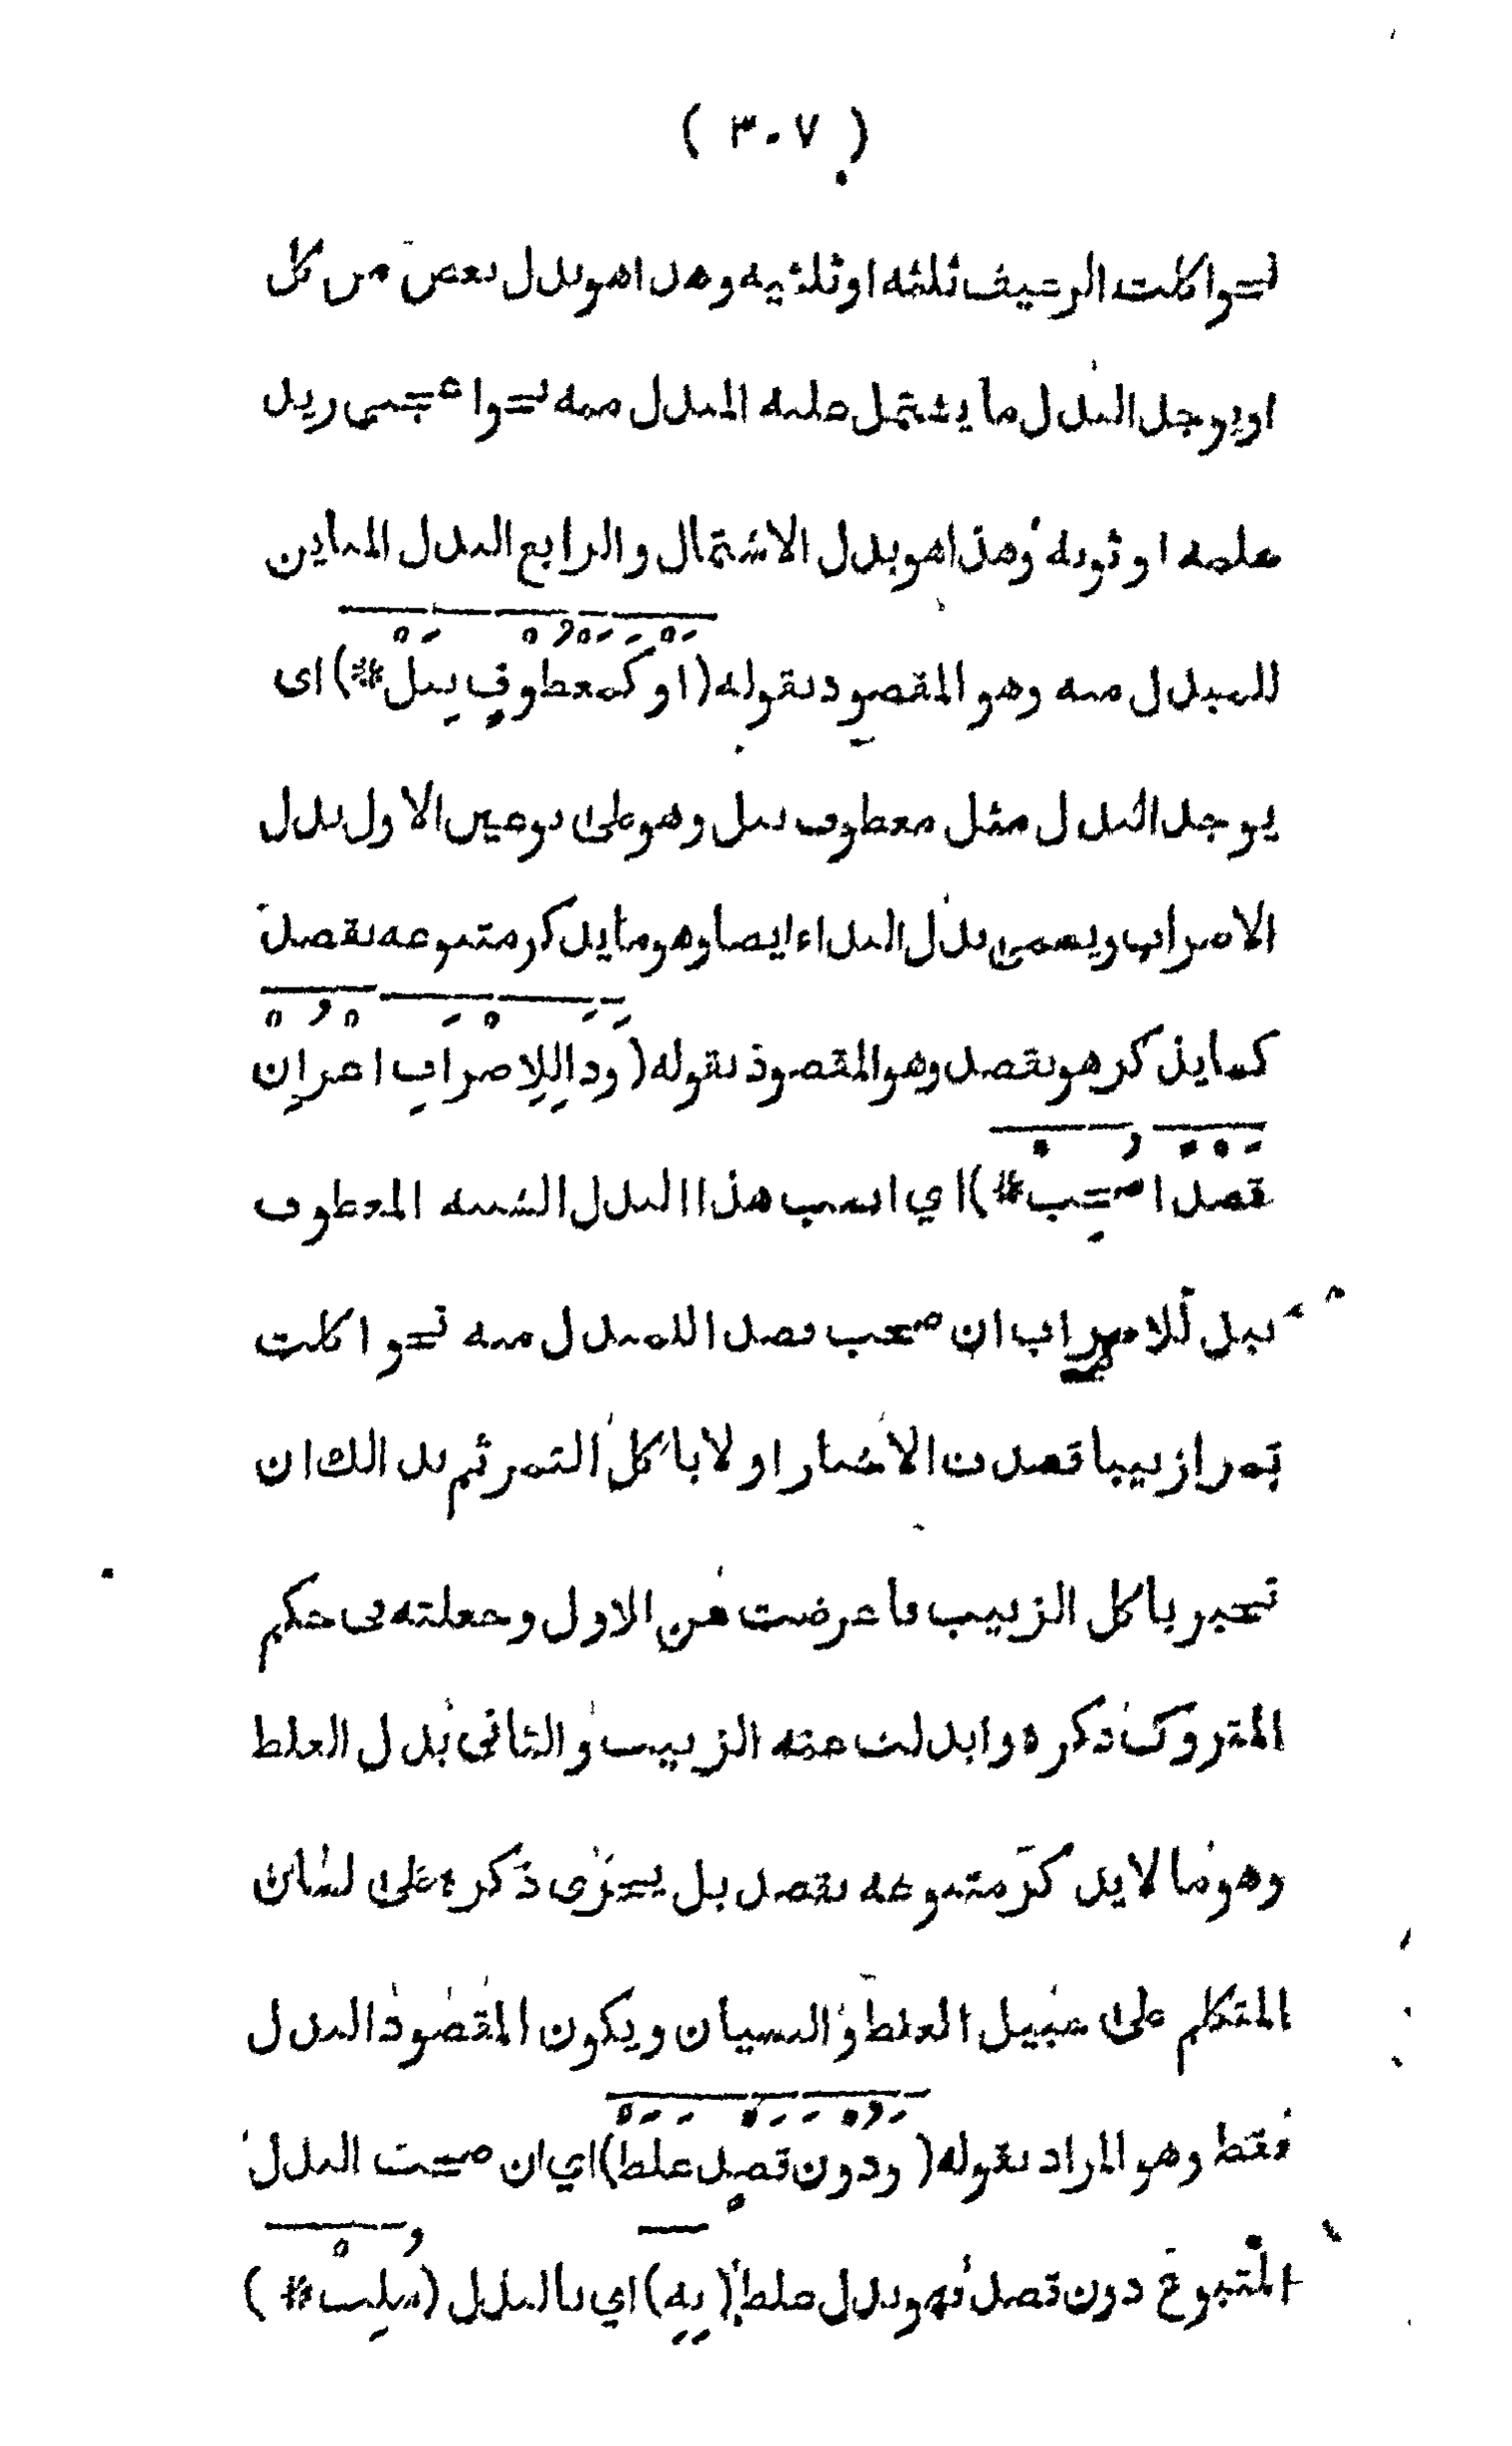 ( ٣٠٧ )
نحو اكلت الرغيف ثلثه او ثلثيه وهذا هو بدل بعض من كل
او يوجد البدل ما يشتمل عليه المبدل منه نحو اعجبني زيد
علمه او ثوبه وهذا هو بدل الاشتمال والرابع البدل المباين
للمبدل منه وهو المقصود بقوله ( او كَمَعْطُوْفٍ بِبَلْ * ) اى
يوجد البدل مثل معطوف ببل وهو على نوعين الاول بدل
الاضراب ويسمى بدل البداء ايضا وهو ما يذكر متبوعه بقصد
كما يذكر هو بقصد وهو المقصود بقوله ( وذا لِلِاضْرَابِ اعْزُ اِنْ
قَصْدًا صُحِبْ * ) اي انسب هذا البدل الشبيه المعطوف
ببل للاضراب ان صحب قصد اللمبدل منه نحو اكلت
تمرا زبيبا قصدت الاخبار اولا باكل التمر ثم بدالك ان
تخبر باكل الزبيب فاعرضت عن الاول وجعلته في حكم
المتروك ذكره وابدلت عنه الزبيب والثانى بدل الغلط
وهو ما لا يذكر متبوعه بقصد بل يجرى ذكره على لسان
المتكلم على سبيل الغلط والنسيان ويكون المقصود البدل
فقط وهو المراد بقوله ( وَدُوْنَ قَصْدٍ غَلَطْ ) اي ان صحبت البدل
المتبوع دون قصد فهو بدل غلط ( بِهِ ) اي بالبدل ( سُلِبْ * )